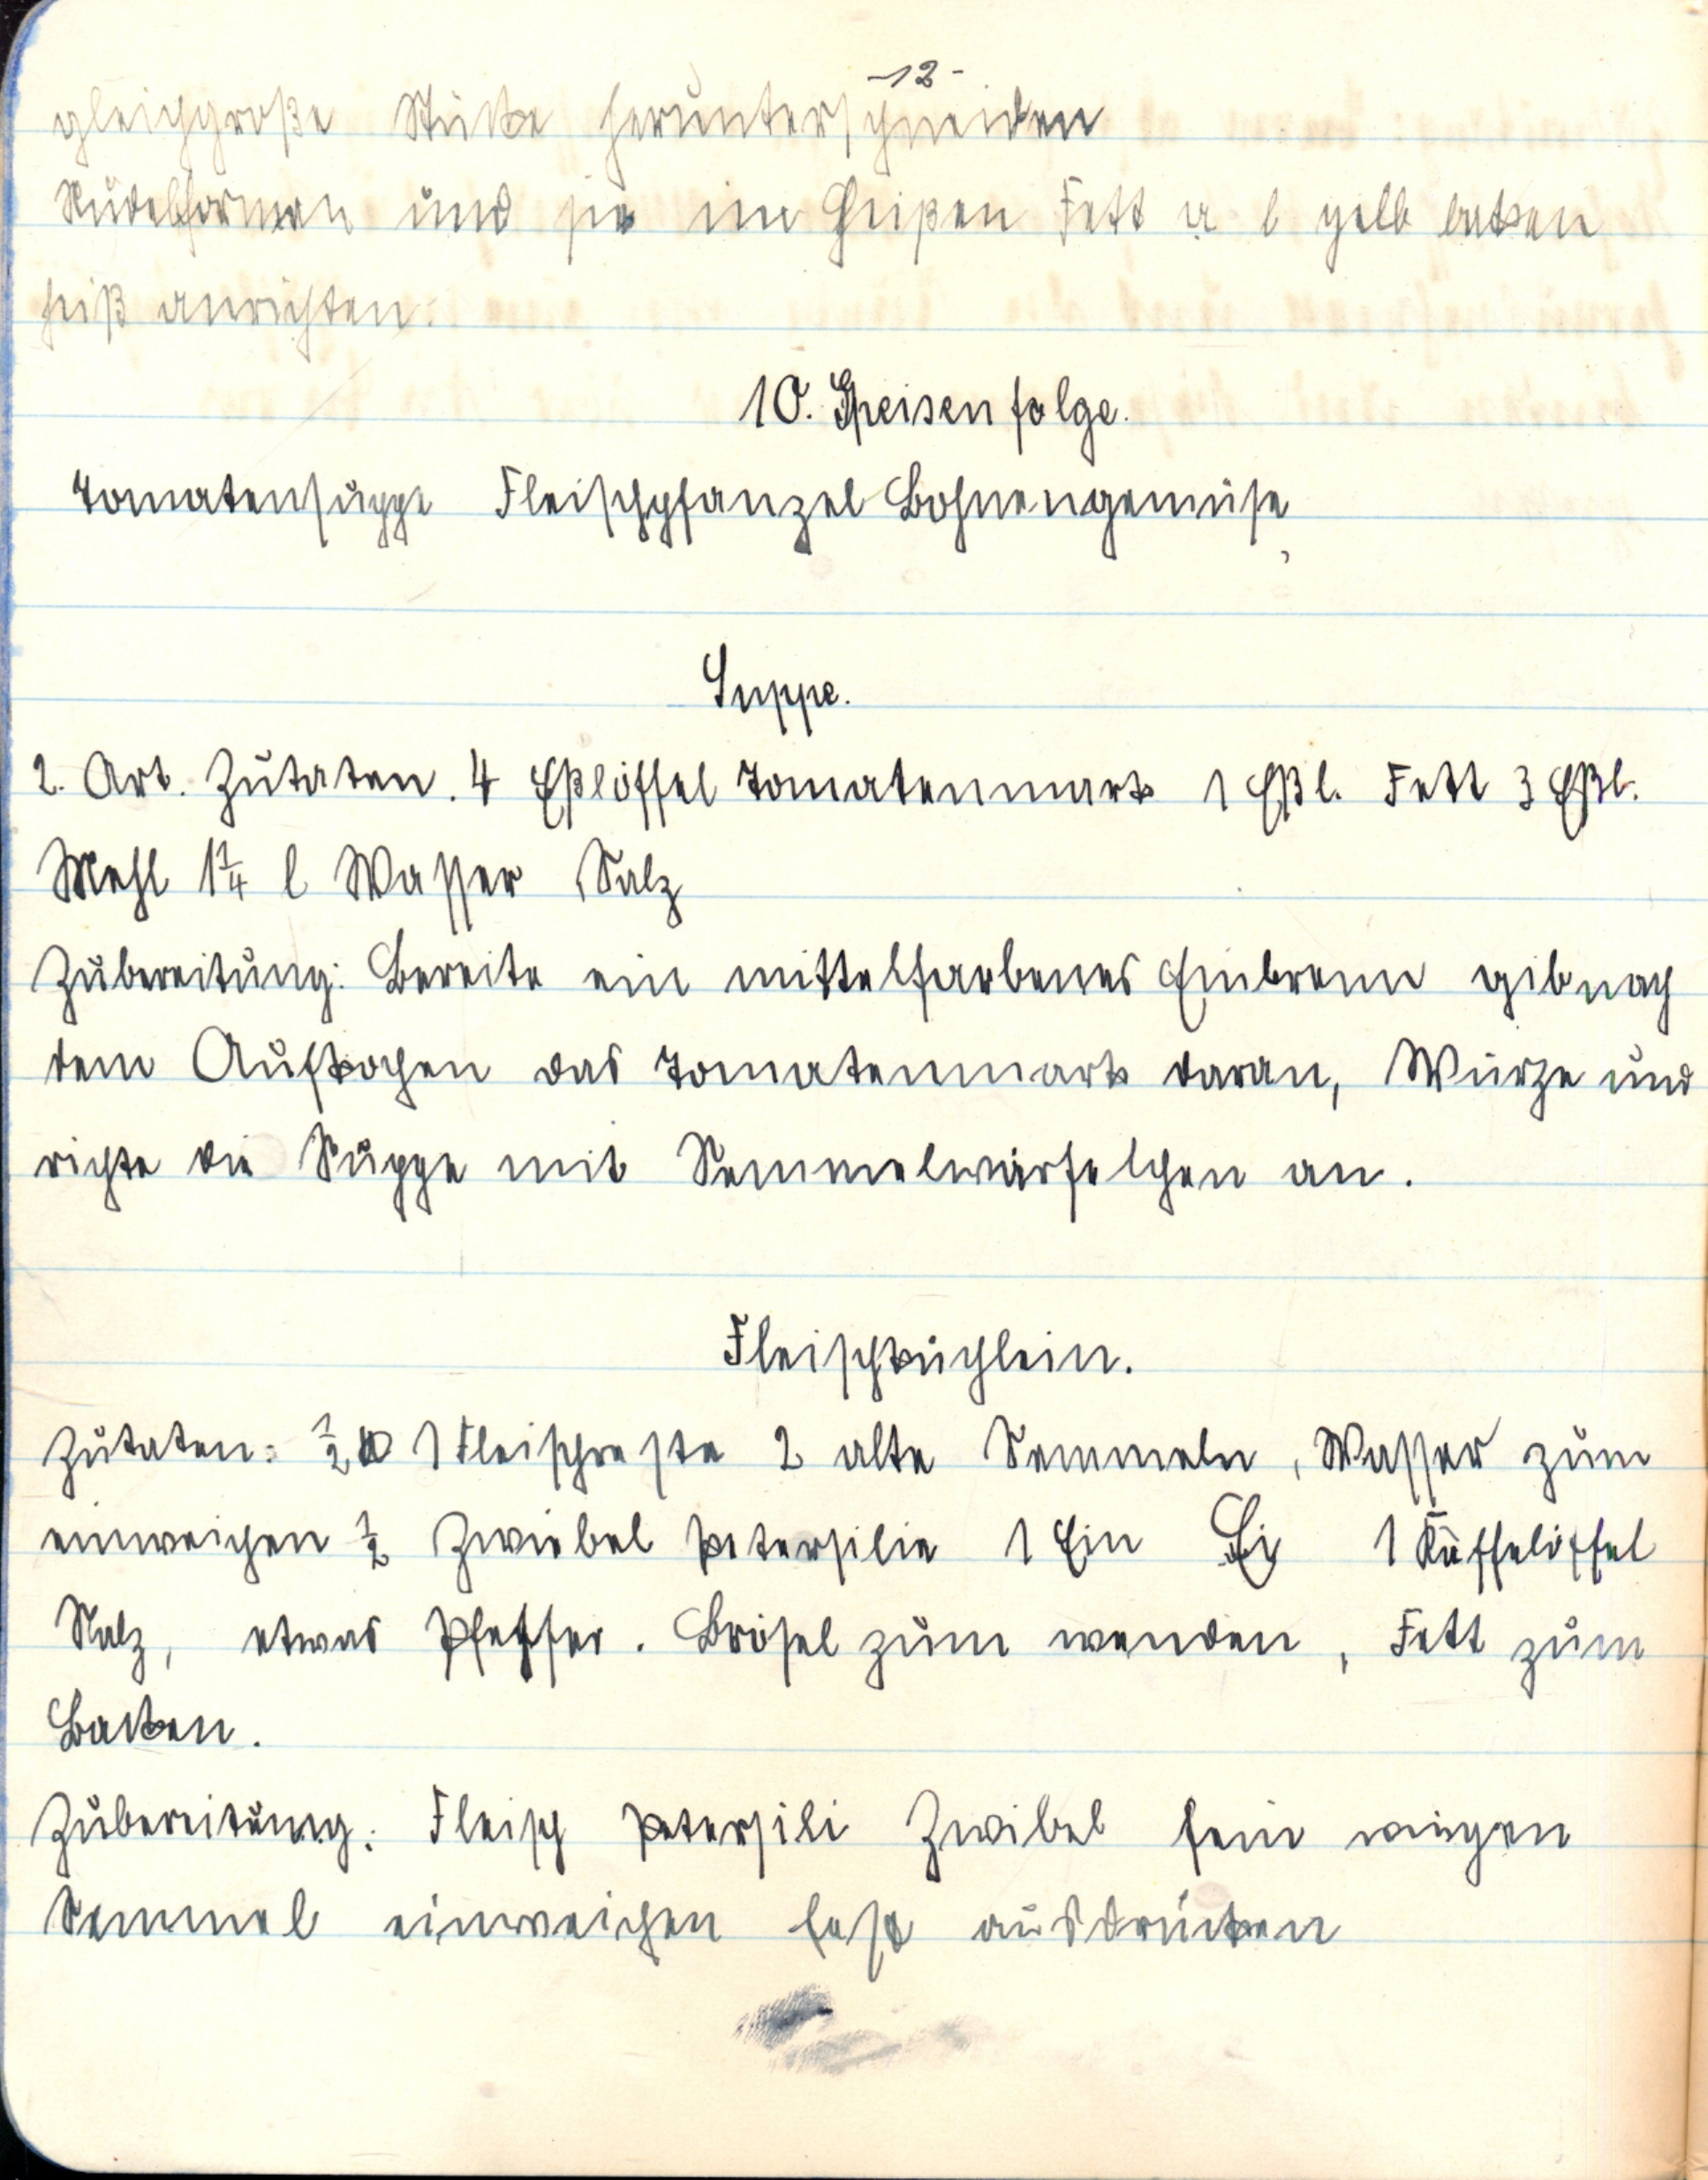 -12-
gleichgroße Stücke herunterschneiden
Nudelformen und sie im heißen Fett gelb backen
heiß anrichten.
10. Speisenfolge.
Tomatensuppe Fleischpfanzel Bohnengemüse
Suppe.
2. Art. Zutaten. 4 Eßlöffel Tomatenmark 1 Eßl. Fett 3 Eßl.
Mehl 1¼ l Wasser Salz
Zubereitung: Bereite ein mittelfarbenes Einbrenn gib nach
dem Aufkochen das Tomatenmark daran, Würze und
richte die Suppe mit Semmelwürfelchen an.
Fleischküchlein.
Zutaten: ½ Fleischreste 2 alte Semmeln, Wasser zum
einweichen ½ Zwiebel Petersilie 1 Ein Ei 1 Kaffelöffel
Salz, etwas Pfeffer. Brösel zum wenden, Fett zum
Backen.
Zubereitung: Fleisch Petersili Zwibel fein wiegen
Semmel einweichen fest ausdrücken